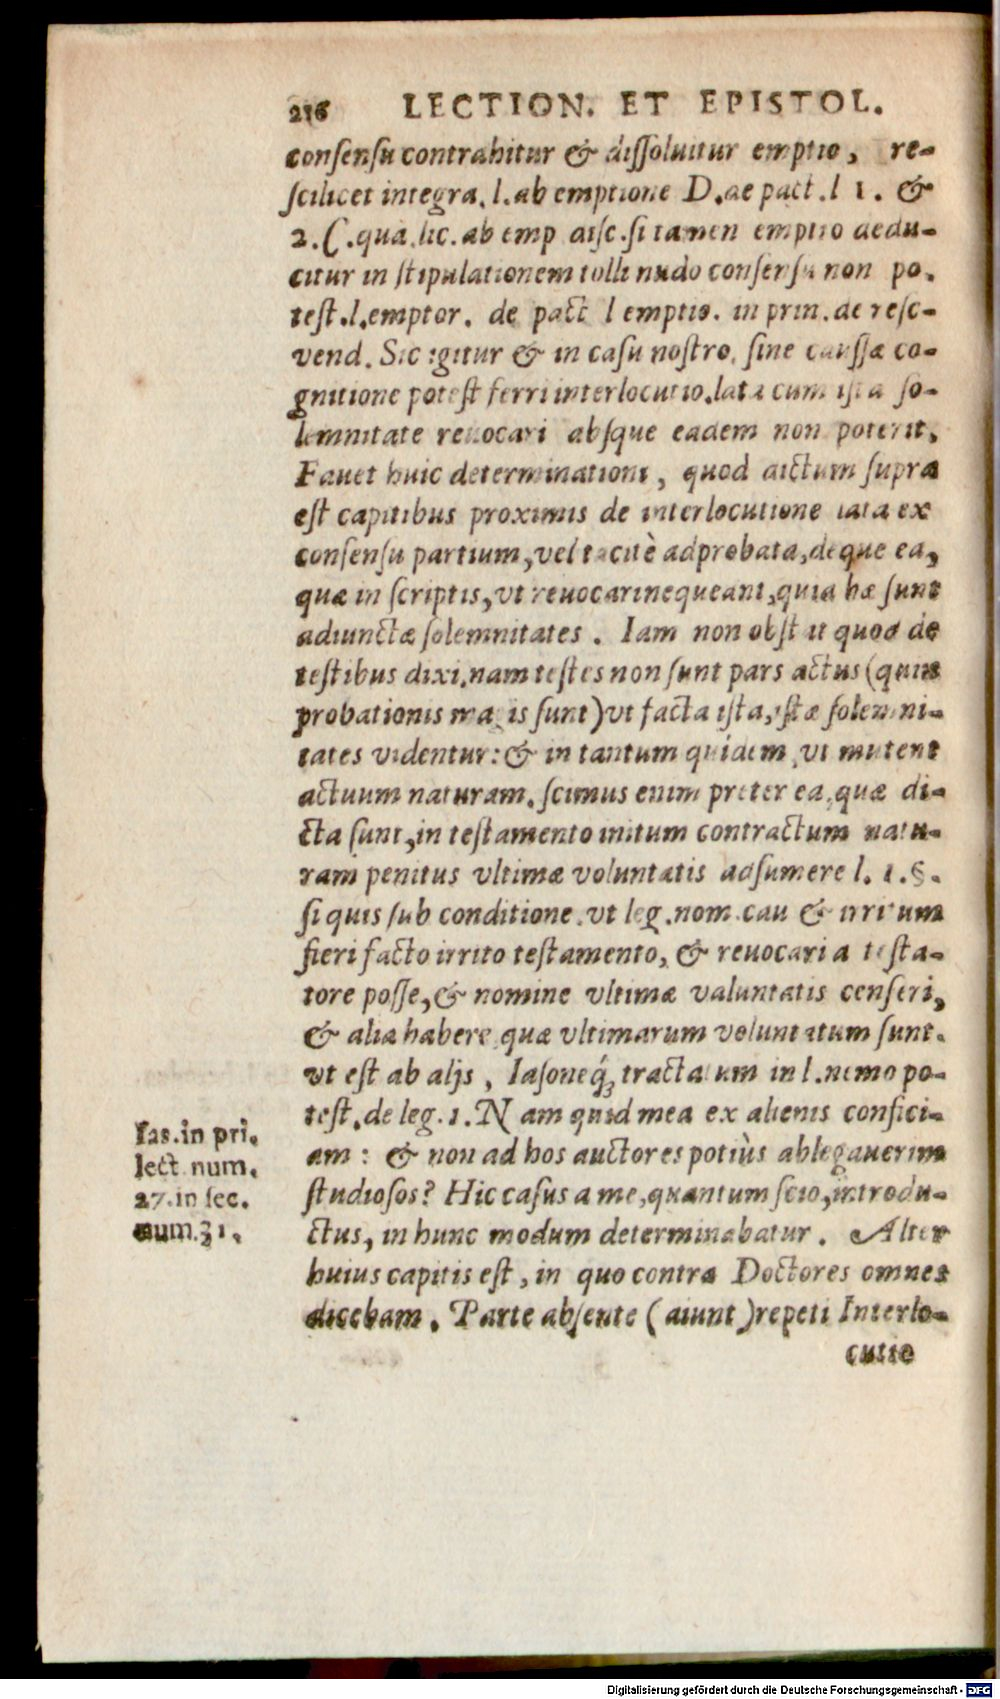 216 LECTION. ET EPISTOL.
consensu contrahitur & dissoluitur emptio, re-
scilicet integra. l. ab emptione D. de pact. l 1. &
2. C. qua. lic. ab emp disc. si tamen emptio dedu-
citur in stipulationem tolli nudo consensu non po-
test. l. emptor. de pact l emptio. in prin. de resc-
vend. Sic igitur & in casu nostro, sine caussæ co-
gnitione potest ferri interlocutio. lata cum ista so-
lemnitate reuocari absque eadem non poterit.
Fauet huic determinationi, quod dictum supra
est capitibus proximis de interlocutione lata ex
consensu partium, vel tacitè adprobata, deque ea,
quæ in scriptis, vt reuocari nequeant, quia hæ sunt
adiunctæ solemnitates. Iam non obstat quod de
testibus dixi. nam testes non sunt pars actus (quin
probationis magis sunt) vt facta ista, istæ solemni-
tates videntur: & in tantum quidem, vt mutent
actuum naturam. scimus enim preter ea, quæ di-
cta sunt, in testamento initum contractum natu-
ram penitus vltimæ voluntatis adsumere l. 1. §.
si quis sub conditione. vt leg. nom. cau & irritum
fieri facto irrito testamento, & reuocari a testa-
tore posse, & nomine vltimæ valuntatis censeri,
& alia habere quæ vltimarum voluntatum sunt.
vt est ab alijs, Iasoneq́; tractatum in l. nemo po-
test. de leg. 1. Nam quid mea ex alienis confici-
am: & non ad hos auctores potiùs ablegauerim
studiosos? Hic casus a me, quantum scio, introdu-
ctus, in hunc modum determinabatur. Alter
huius capitis est, in quo contra Doctores omnes
dicebam. Parte absente (aiunt) repeti Interlo-
cutio
Ias. in pri.
lect. num.
27. in sec.
num. 31.
Digitalisierung gefördert durch die Deutsche Forschungsgemeinschaft - DFG